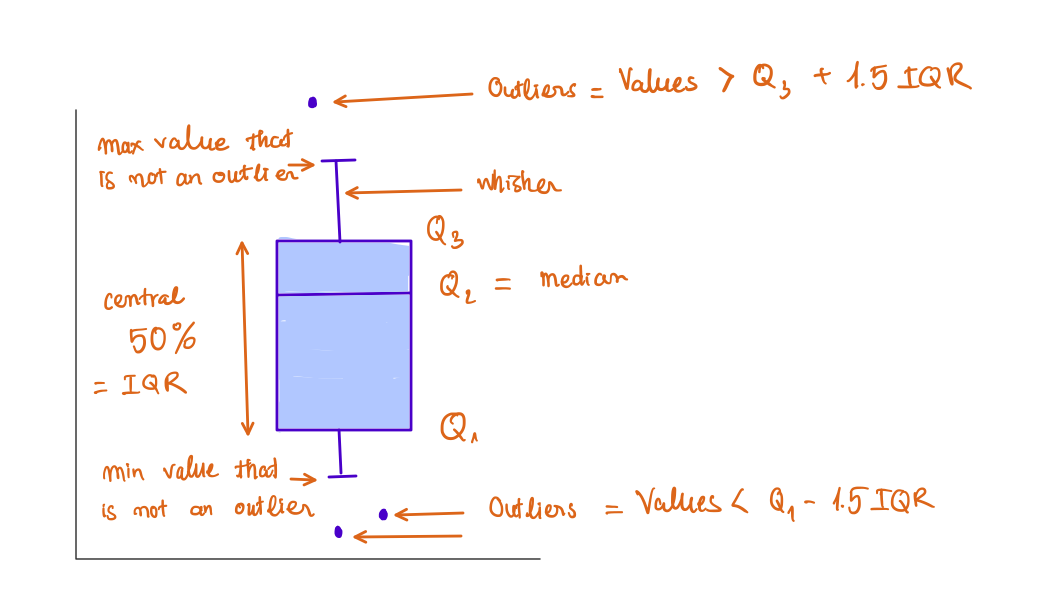 Outliers = Values > Q3 + 1.5 IQR
max value that
is not an outlier
whisher
Q3
Q2 = median
central
50%
= IQR
Q1
min value that
is not an outlier
Outliers = Values < Q1 - 1.5 IQR